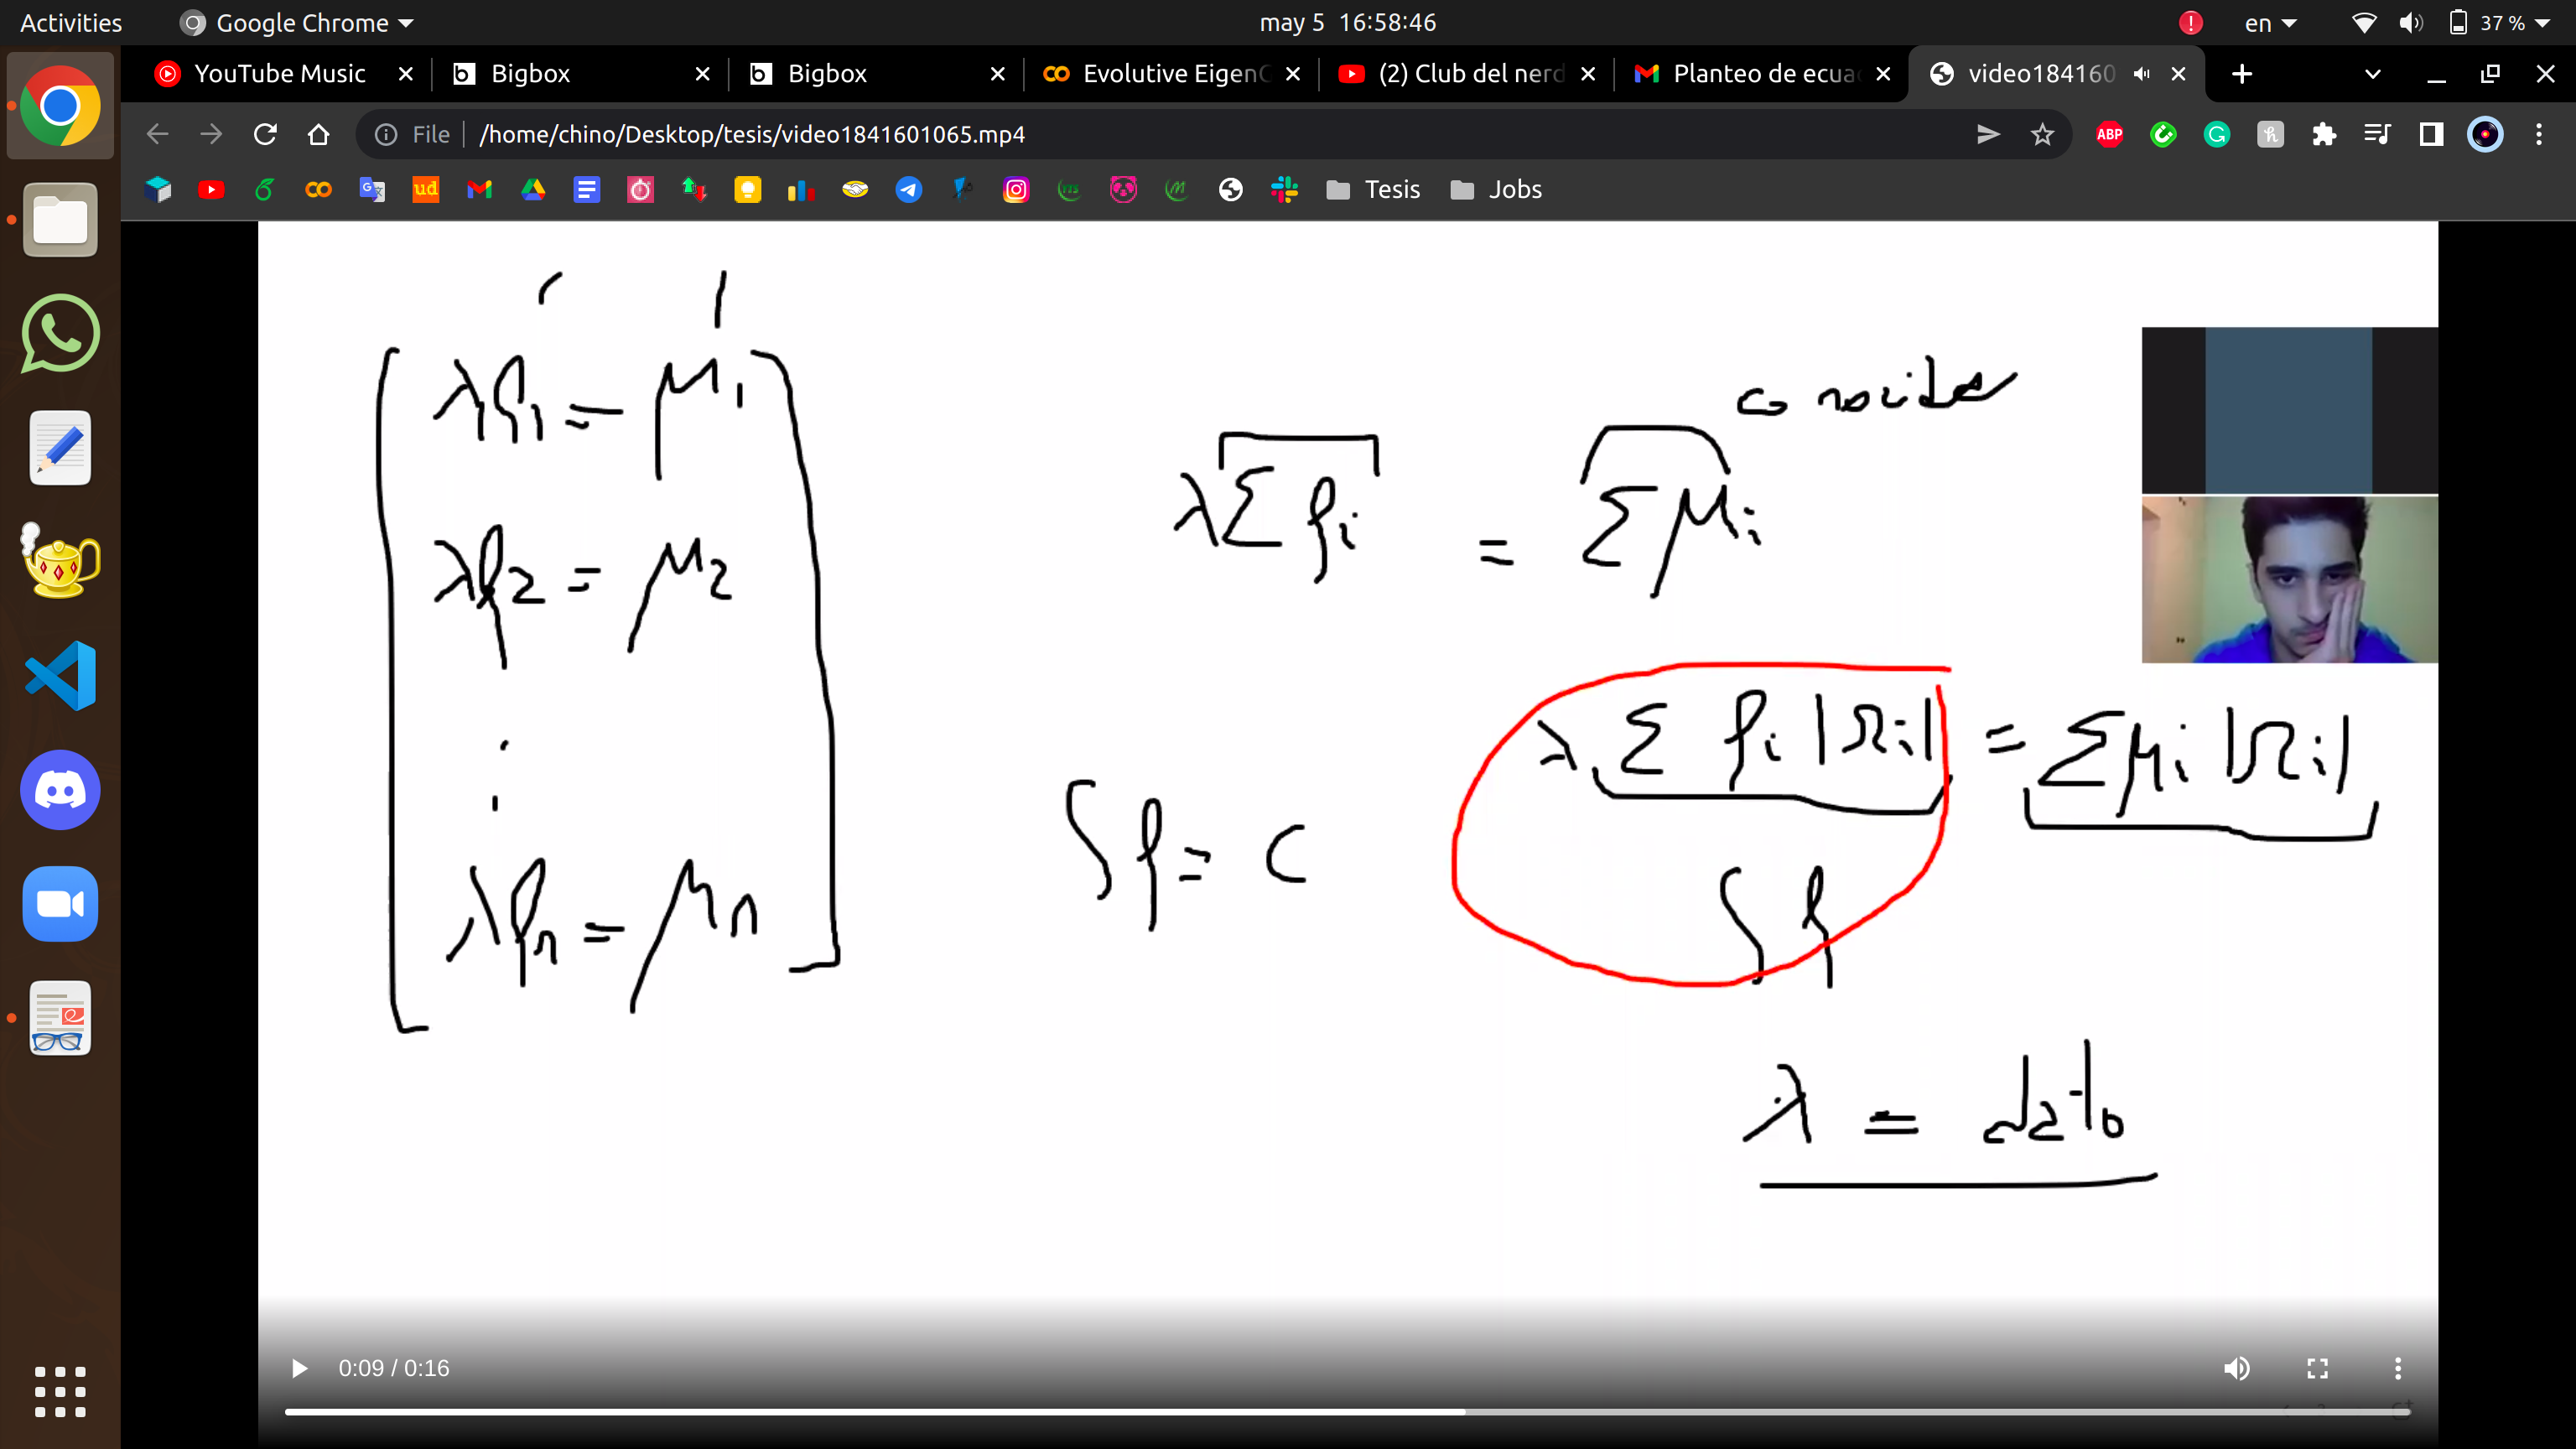 Activities Google Chrome may 5 16:58:46 en 37 %
YouTube Music Bigbox Bigbox Evolutive EigenC (2) Club del nerd Planteo de ecua video184160
File /home/chino/Desktop/tesis/video1841601065.mp4
ABP ud Tesis Jobs
λρ₁ = μ₁
λρ₂ = μ₂
λρₙ = μₙ
λ Σ ρᵢ = Σ μᵢ
λ Σ ρᵢ |Ωᵢ| = Σ μᵢ |Ωᵢ|
∫ρ = C
∫ρ
λ = dato
0:09 / 0:16